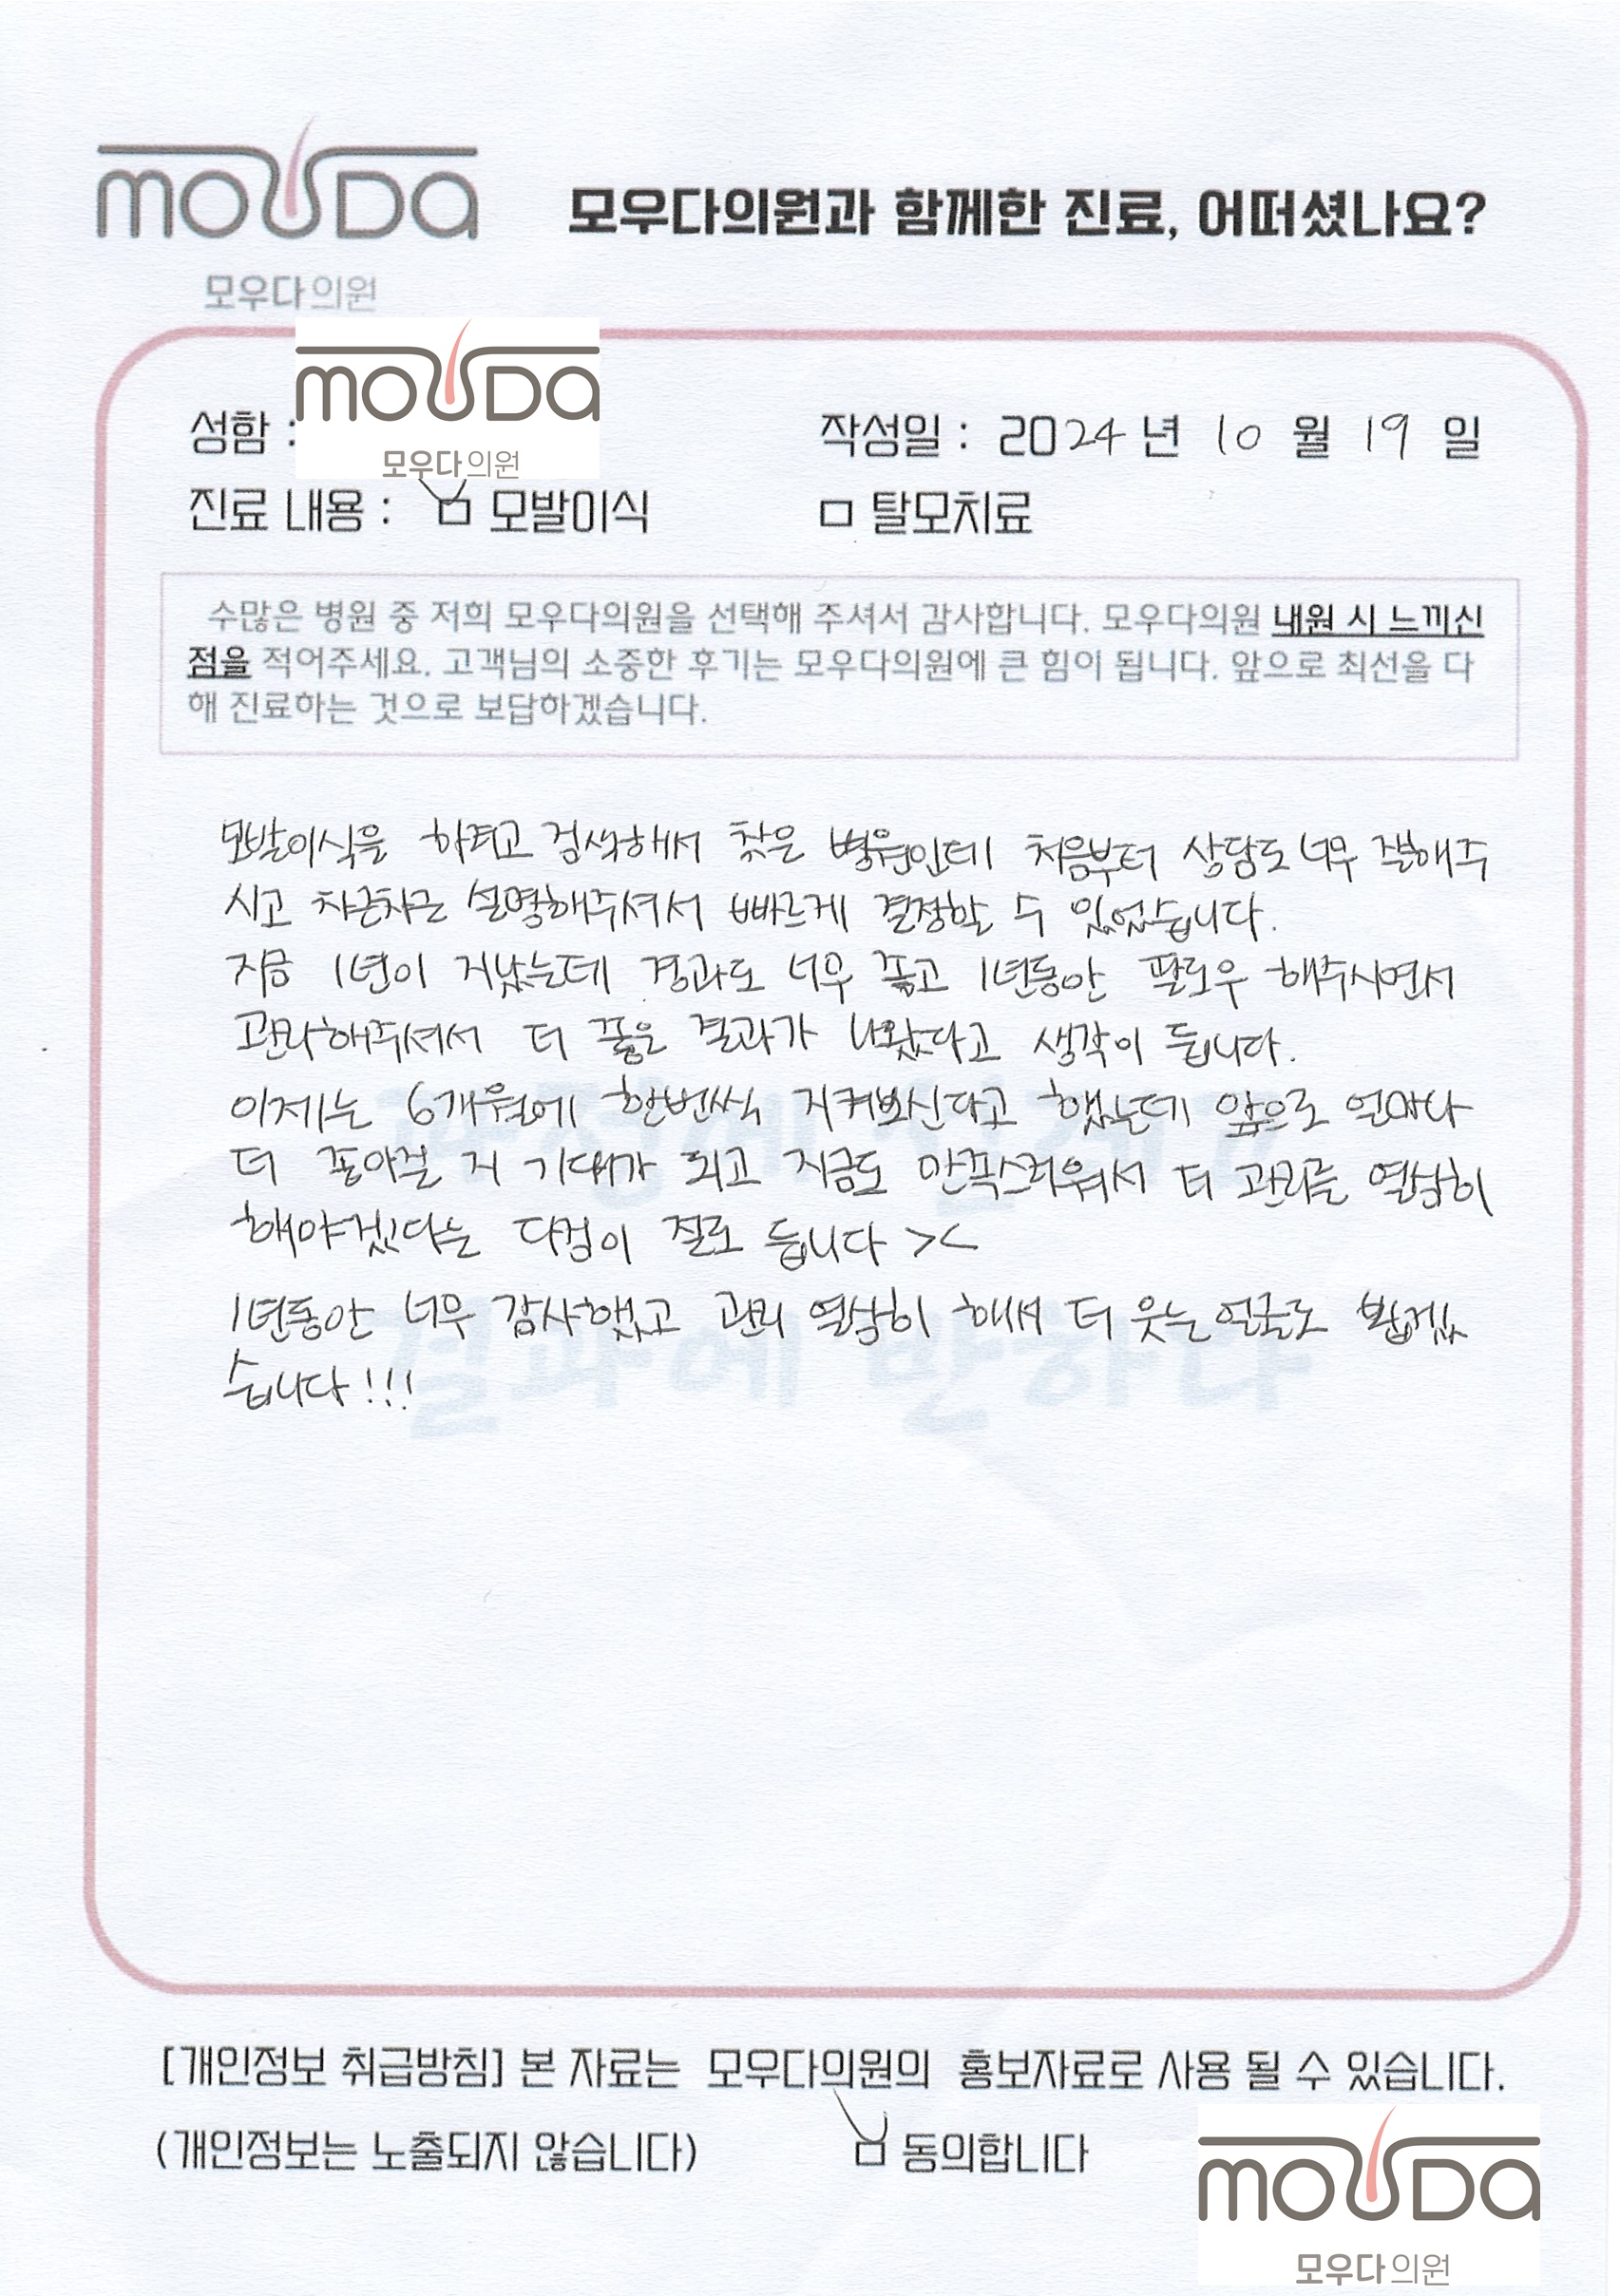 moUDa
모우다의원
모우다의원과 함께한 진료, 어떠셨나요?
moUDa
모우다의원
성함 :
작성일 : 2024년 10월 19일
진료 내용 : ☑ 모발이식 □ 탈모치료
수많은 병원 중 저희 모우다의원을 선택해 주셔서 감사합니다. 모우다의원 내원 시 느끼신
점을 적어주세요. 고객님의 소중한 후기는 모우다의원에 큰 힘이 됩니다. 앞으로 최선을 다
해 진료하는 것으로 보답하겠습니다.
모발이식을 하려고 검색해서 찾은 병원인데 처음부터 상담도 너무 잘해주
시고 차근차근 설명해주셔서 빠르게 결정할 수 있었습니다.
지금 1년이 지났는데 경과도 너무 좋고 1년동안 팔로우 해주시면서
관리해주셔서 더 좋은 결과가 나왔다고 생각이 듭니다.
이제는 6개월에 한번씩 지켜보신다고 했는데 앞으로 얼마나
더 좋아질 지 기대가 되고 지금도 만족스러워서 더 관리를 열심히
해야겠다는 다짐이 절로 듭니다 ><
1년동안 너무 감사했고 관리 열심히 해서 더 웃는 얼굴로 뵙겠
습니다!!!
결과에 반하다
[개인정보 취급방침] 본 자료는 모우다의원의 홍보자료로 사용 될 수 있습니다.
(개인정보는 노출되지 않습니다) ☑ 동의합니다
moUDa
모우다의원